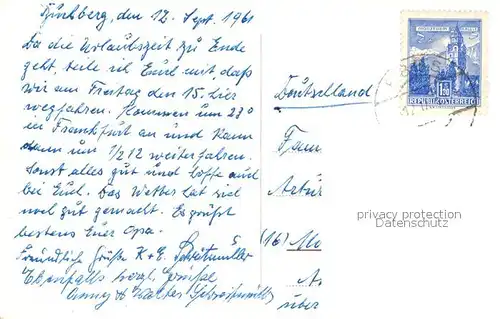 Puchberg, den 12. Sept. 1961
Da die Urlaubszeit zu Ende
geht, teile ich Euch mit, daß
wir am Freitag den 15. hier
wegfahren. Kommen um 23°
in Frankfurt an und kann
dann um 1/2 12 weiterfahren.
Sonst alles gut und hoffe auch
bei Euch. Das Wetter hat sich
noch gut gemacht. Es grüßt
bestens Euer Opa.
Freundliche Grüße K. + E.
Ebenfalls herzl. Grüße
Anny & Walter
Deutschland
Fam
Artur
(16) Mo
über
1.50
REPUBLIK ÖSTERREICH
privacy protection
Datenschutz